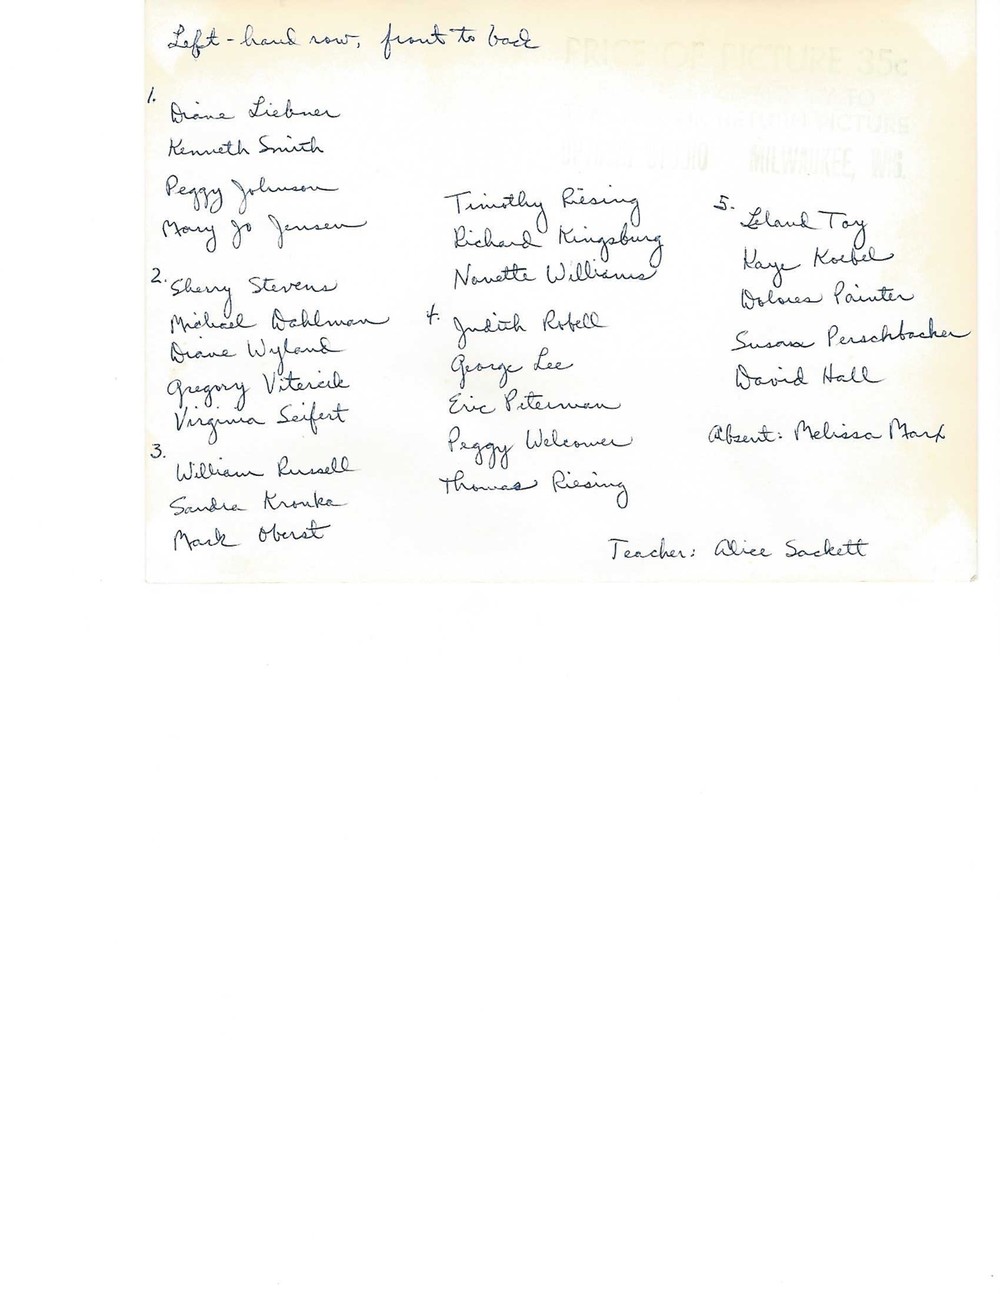 Left-hand row, front to back
1.
Diane Liebner
Kenneth Smith
Peggy Johnson
Mary Jo Jensen
2. Sherry Stevens
Michael Dahlman
Diane Wyland
Gregory Vitercik
Virginia Seifert
3.
William Russell
Sandra Kronka
Mark Oberst
Timothy Riesing
Richard Kingsburg
Nanette Williams
4. Judith Robell
George Lee
Eric Peterman
Peggy Welcomer
Thomas Riesing
5. Leland Toy
Kaye Koebel
Dolores Painter
Susan Perschbacher
David Hall
Absent: Melissa Marx
Teacher: Alice Sackett
PRICE OF PICTURE 35c
TO
RETURN PICTURE
MILWAUKEE, WIS.